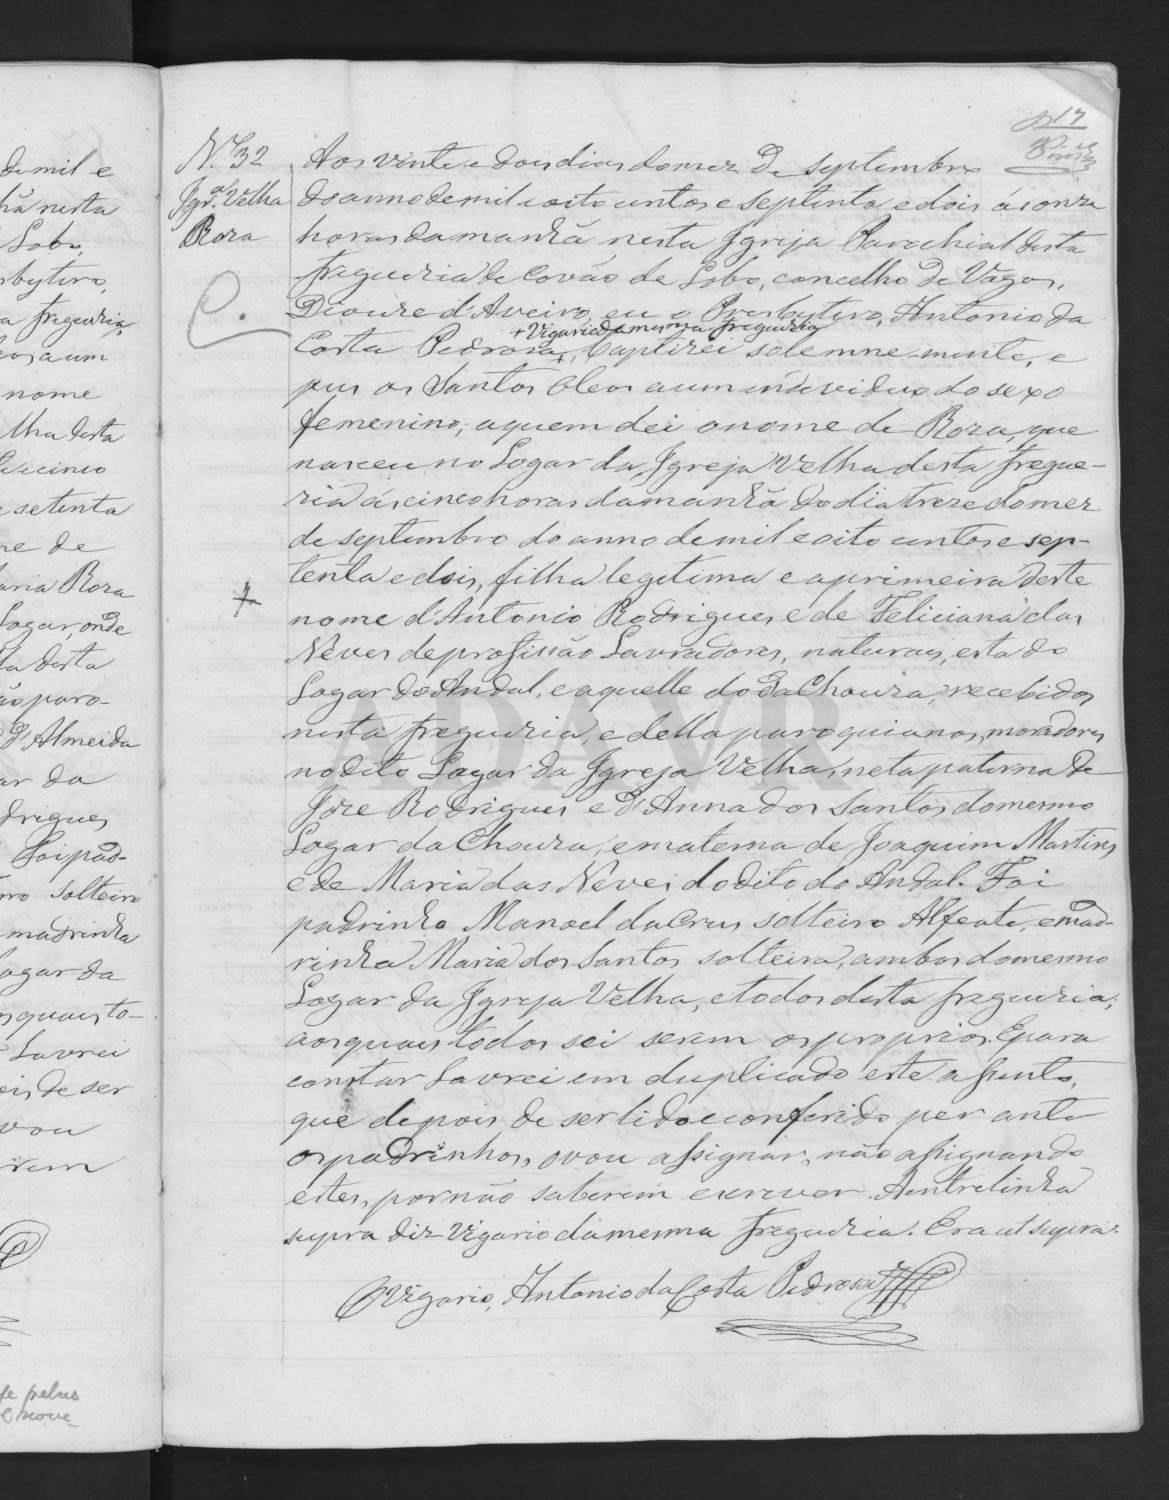 17
N.º 32
Igr.ª Velha
Roza
C.
Aos vinte e dous dias do mez de septembro
do anno de mil e oito centos e septenta e dois ás onze
horas da manhã nesta Igreja Parochial desta
freguezia de Covão de Lobo, concelho de Vagos,
Diocese d'Aveiro, eu o Presbytero, Antonio da
+ Vigario da mesma freguezia
Costa Pedrosa +, baptizei solemne-mente, e
pus os Santos Oleos a um individuo do sexo
femenino, a quem dei o nome de Roza, que
nasceu no Logar da Igreja Velha desta fregue-
zia ás cinco horas da manhã do dia treze do mez
de septembro do anno de mil e oito centos e sep-
tenta e dois, filha legitima e a primeira deste
nome d'Antonio Rodrigues e de Feliciana das
Neves de profissão Lavradores, naturaes, esta do
Logar do Andal, e aquelle do da Chouza, recebidos
nesta freguezia, e della paroquianos, moradores
no dito Logar da Igreja Velha, neta paterna de
Joze Rodrigues e d'Anna dos Santos do mesmo
Logar da Chouza, e materna de Joaquim Martins
e de Maria das Neves do dito do Andal. Foi
padrinho Manoel da Crus solteiro Alfeate, e mad-
rinha Maria dos Santos solteira, ambos do mesmo
Logar da Igreja Velha, e todos desta freguezia;
aos quaes todos sei serem os proprios. E para
constar Lavrei em duplicado este assento,
que depois de ser lido e conferido per ante
os padrinhos, o vou assignar, não assignando
estes, por não saberem escrever. A entrelinha
supra diz Vigario da mesma freguezia. Era ut supra.
O Vigario, Antonio da Costa Pedrosa
de mil e
hã nesta
Lobo,
sbytero,
a freguezia
eos a um
nome
lha desta
cinco
e setenta
ne de
aria Roza
Logar, onde
ta desta
ão paro-
d'Almeida
ar da
drigues
Foi pad-
ro solteiro
madrinha
ogar da
s quaes to-
Lavrei
ois de ser
vou
rem
fe pelas
e nove
ADAVR